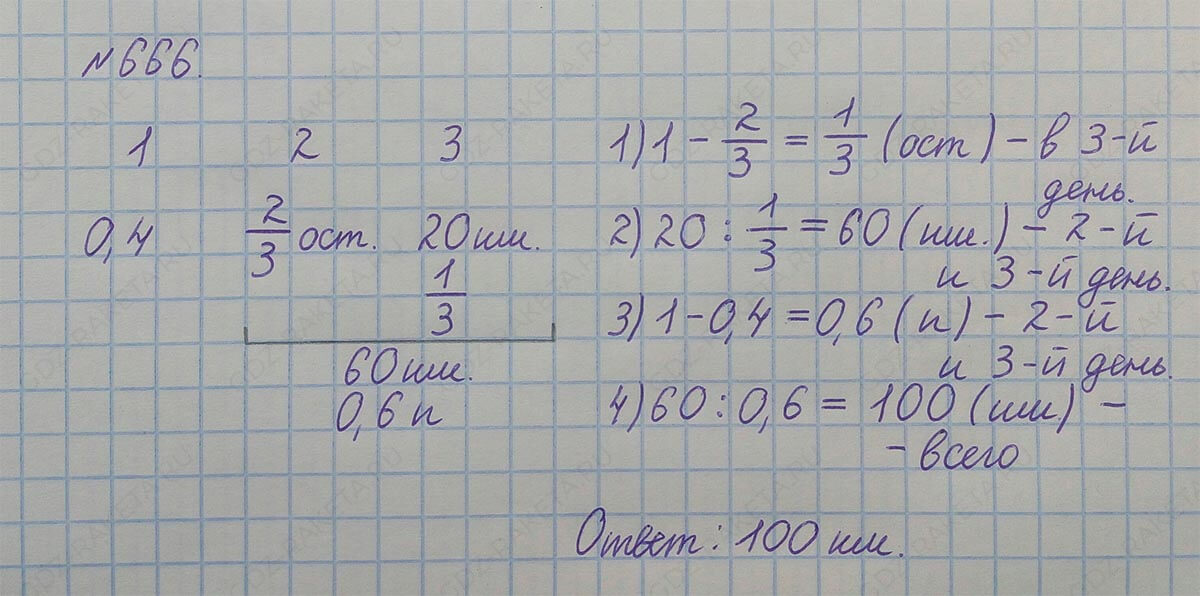 №666.
1 2 3
0,4 2/3 ост. 20 км.
1/3
60 км.
0,6 п
1) 1 - 2/3 = 1/3 (ост) - в 3-й
день.
2) 20 : 1/3 = 60 (км.) - 2-й
и 3-й день.
3) 1 - 0,4 = 0,6 (п) - 2-й
и 3-й день.
4) 60 : 0,6 = 100 (км.) -
- всего
Ответ: 100 км.
GDZ-RAKETA.RU